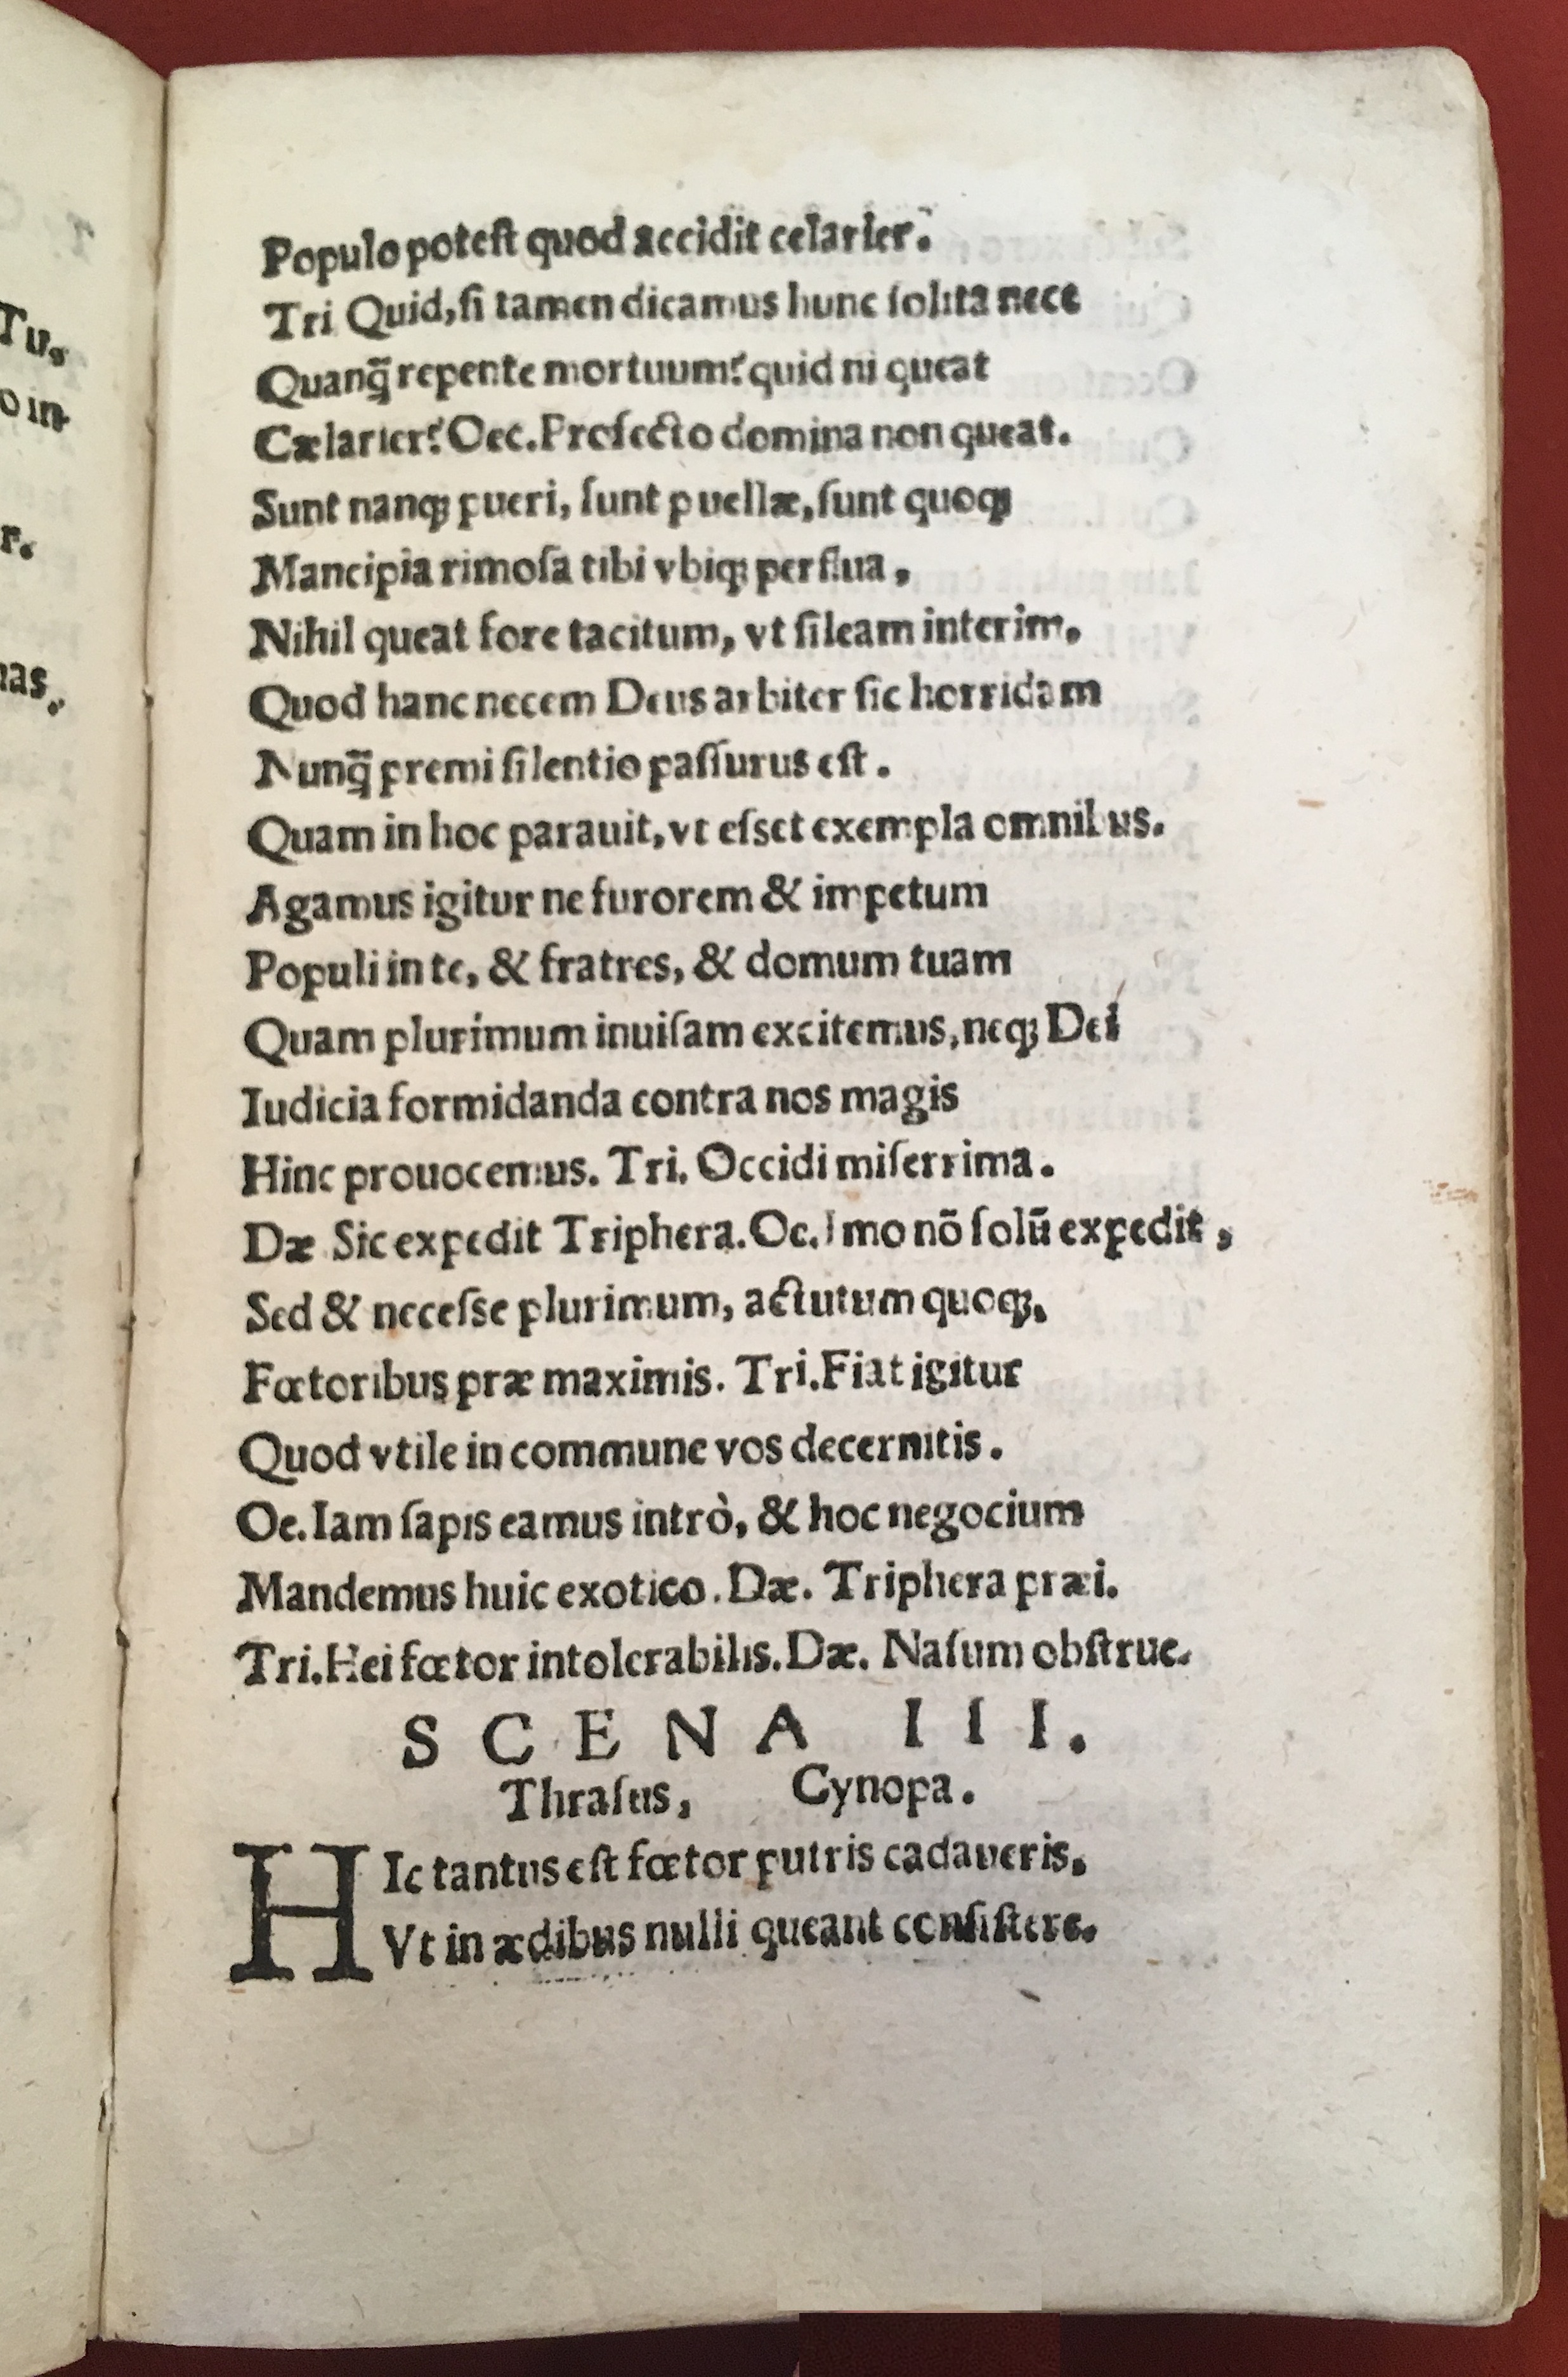 Tu.
o in-
r.
nas.
Populo poteſt quod accidit celarier.
Tri Quid, ſi tamen dicamus hunc ſolita nece
Quanq̃ repente mortuum? quid ni queat
Cælarier? Oec. Profecto domina non queat.
Sunt nanq; pueri, ſunt puellæ, ſunt quoq;
Mancipia rimoſa tibi vbiq; perflua,
Nihil queat fore tacitum, vt ſileam interim.
Quod hanc necem Deus arbiter ſic horridam
Nunq̃ premi ſilentio paſſurus eſt.
Quam in hoc parauit, vt eſset exempla omnibus.
Agamus igitur ne furorem & impetum
Populi in te, & fratres, & domum tuam
Quam plurimum inuiſam excitemus, neq; Dei
Iudicia formidanda contra nos magis
Hinc prouocemus. Tri. Occidi miſerrima.
Dæ Sic expedit Triphera. Oe. Imo nõ ſolũ expedit,
Sed & neceſse plurimum, actutum quoq;.
Fœtoribus præ maximis. Tri. Fiat igitur
Quod vtile in commune vos decernitis.
Oe. Iam ſapis eamus intrò, & hoc negocium
Mandemus huic exotico. Dæ. Triphera præi.
Tri. Hei fœtor intolerabilis. Dæ. Naſum obſtrue.
SCENA III.
Thraſus, Cynopa.
HIc tantus eſt fœtor putris cadaueris,
Vt in ædibus nulli queant conſiſtere.